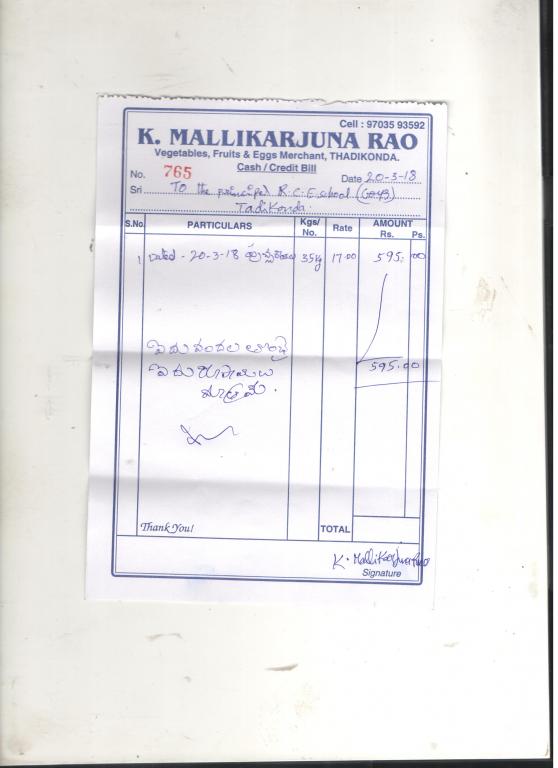 Cell : 97035 93592
K. MALLIKARJUNA RAO
Vegetables, Fruits & Eggs Merchant, THADIKONDA.
Cash / Credit Bill
No. 765 Date 20-3-18
Sri To the principal R.C.E school (Boys)
Tadikonda.
S.No. PARTICULARS Kgs/No. Rate AMOUNT Rs. Ps.
1 Dated - 20-3-18 35kg 17.00 595.00
ఐదు వందల తొంభై
ఐదు రూపాయలు
మాత్రమే.
595.00
Thank You! TOTAL
K. Mallikarjuna Rao
Signature